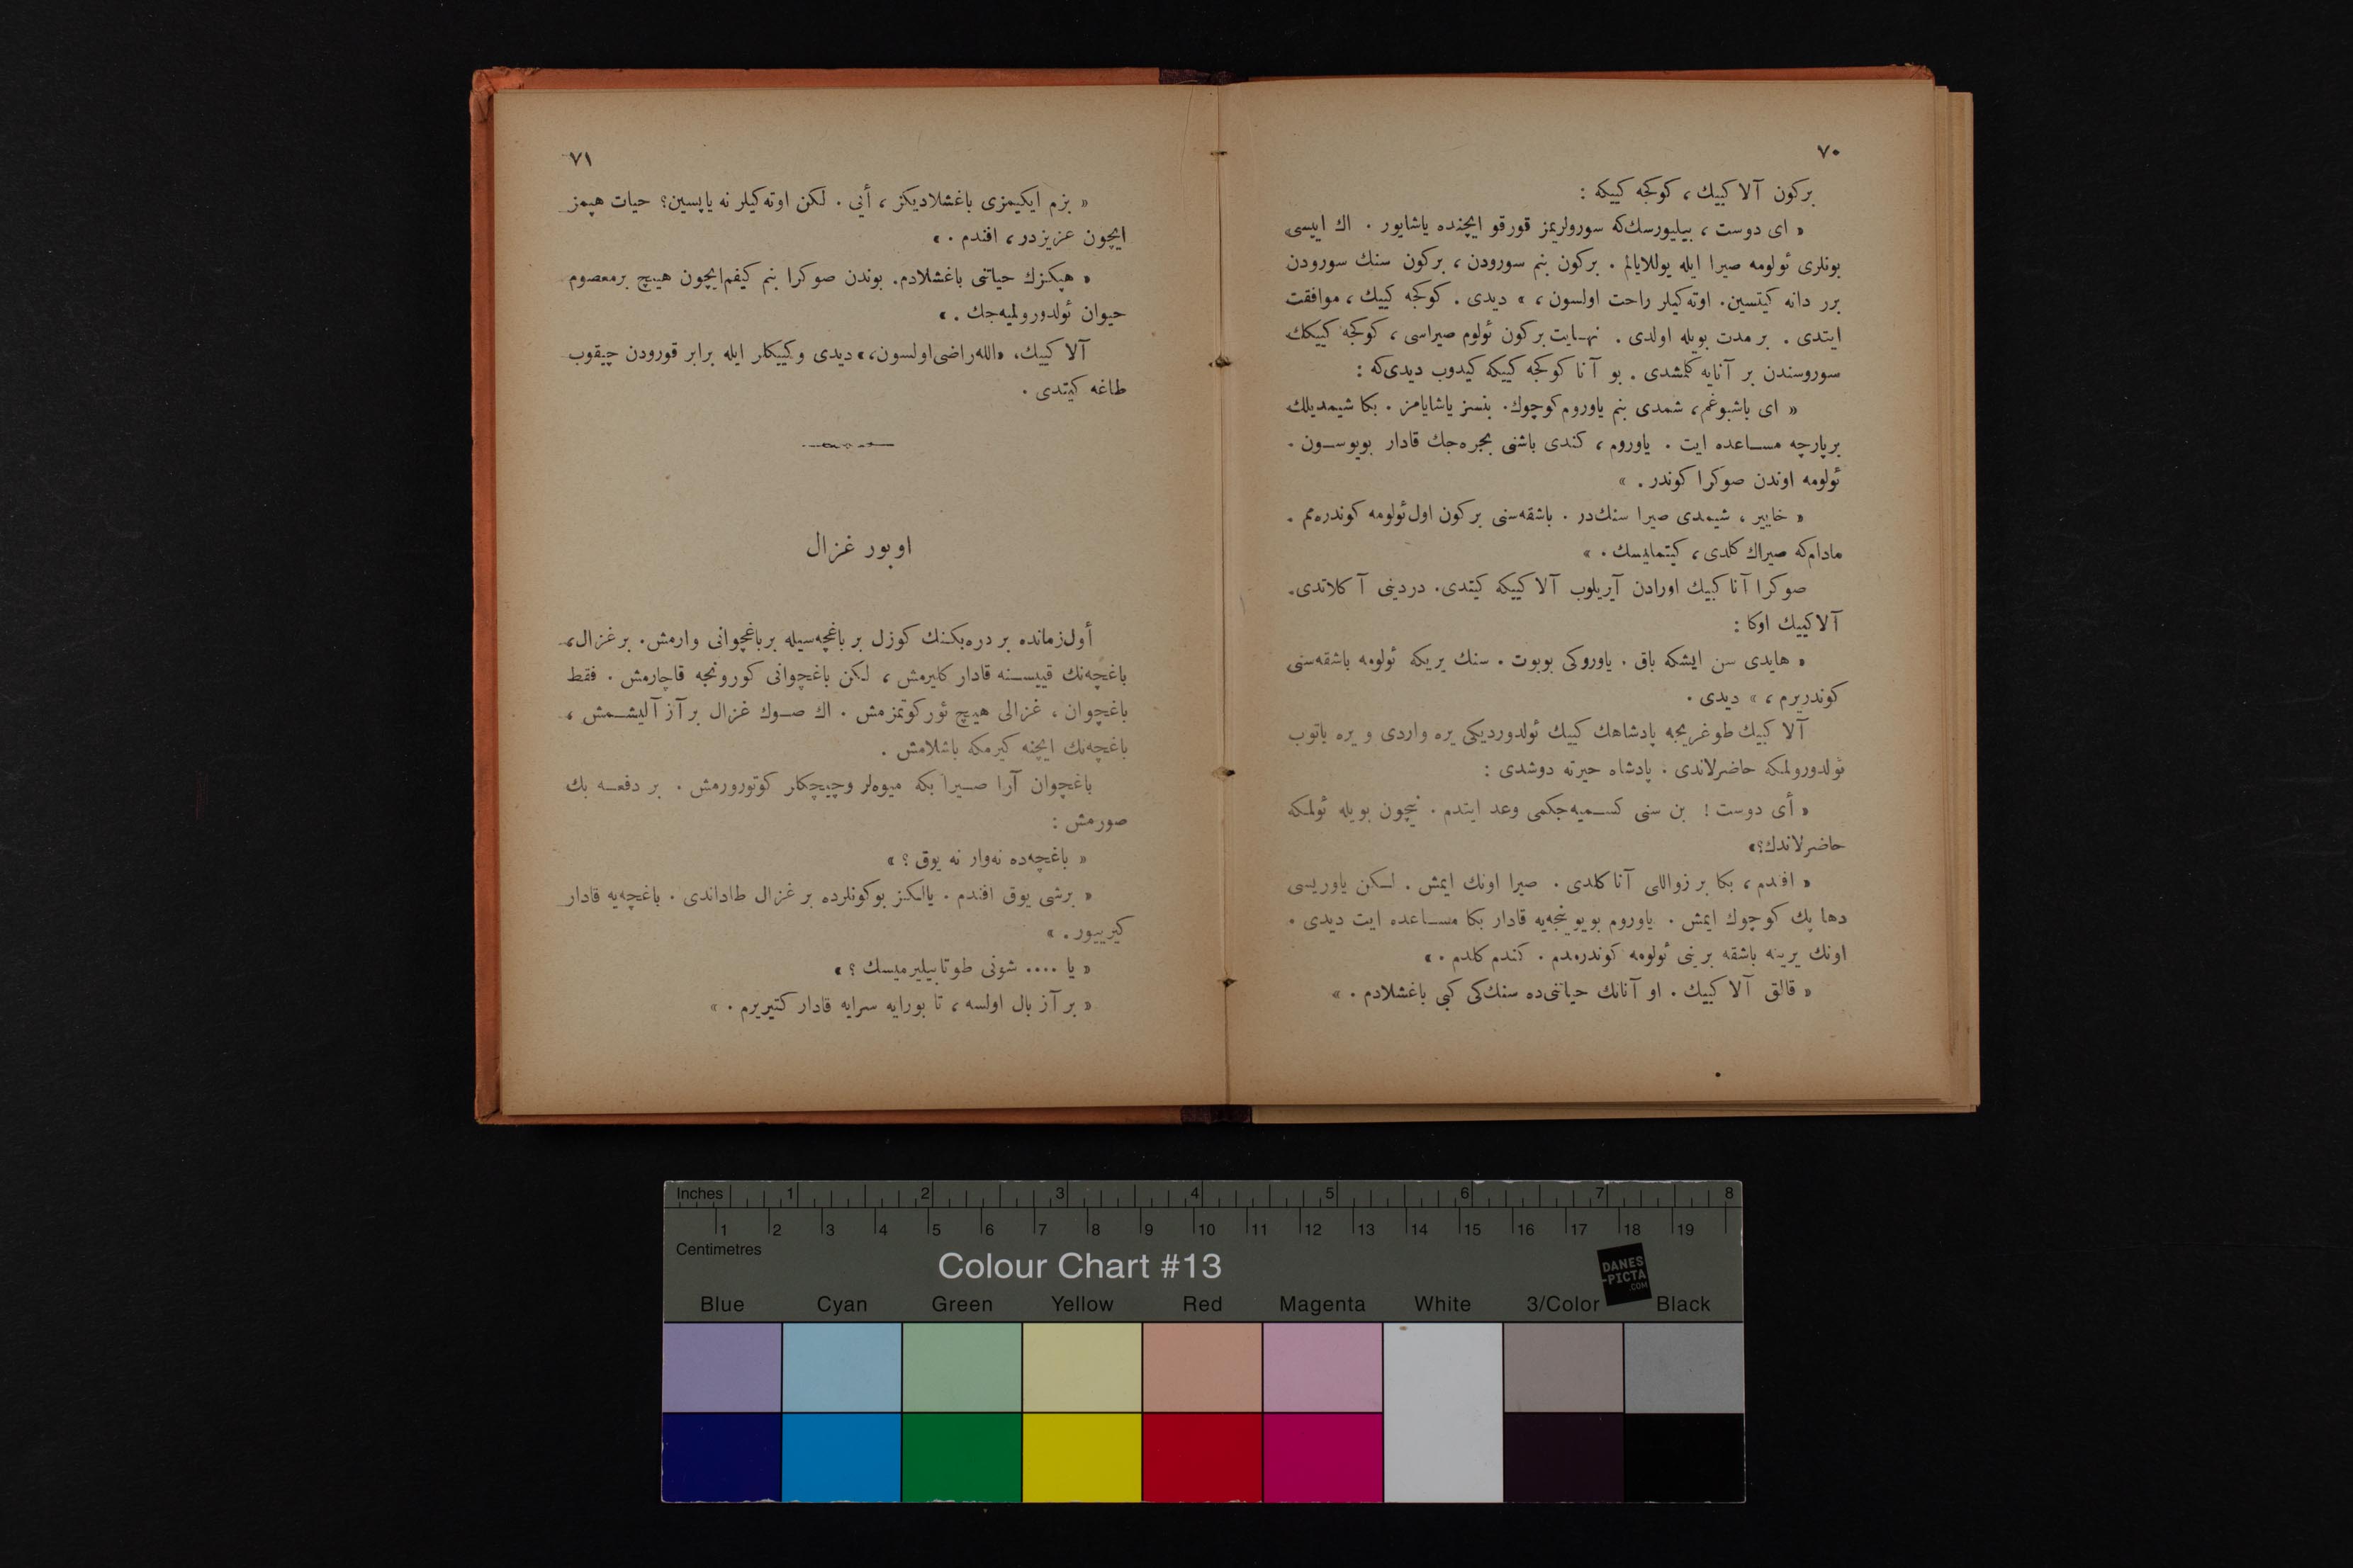 ٧٠
بركون آلا كييك ، كوكجه كييكه :
« ای دوست ، بيليورسك‌كه سورولريمز قورقو ايچنده ياشايور . اك اييسی
بونلری ئولومه صيرا ايله يوللايالم . بركون بنم سورودن ، بركون سنك سورودن
برر دانه كيتسين. اوته‌كيلر راحت اولسون ، » ديدی . كوكجه كييك ، موافقت
ايتدی . بر مدت بويله اولدی . نهـايت بركون ئولوم صيراسی ، كوكجه كييكك
سوروسندن بر آنايه كلمشدی . بو آنا كوكجه كييكه كيدوب ديدی‌كه :
« ای باشبوغم ، شمدی بنم ياوروم كوچوك. بنسز ياشايامز . بكا شيمديلك
برپارچه مسـاعده ايت . ياوروم ، كندی باشنی بجره‌جك قادار بويوسـون .
ئولومه اوندن صوكرا كوندر . »
« خايير ، شيمدی صيرا سنك‌در . باشقه‌سنی بركون اول ئولومه كوندره‌مم .
مادام‌كه صيراك كلدی ، كيتمليسك . »
صوكرا آنا كييك اورادن آيريلوب آلا كييكه كيتدی. دردينی آ كلاتدی.
آلا كييك اوكا :
« هايدی سن ايشكه باق . ياوروكی بويوت . سنك يريكه ئولومه باشقه‌سنی
كوندريرم ، » ديدی .
آلا كييك طوغريجه پادشاهك كييك ئولدورديكی يره واردی و يره ياتوب
ئولدورولمكه حاضرلاندی . پادشاه حيرته دوشدی :
« أی دوست ! بن سنی كسـميه‌جكمی وعد ايتدم . نيچون بويله ئولمكه
حاضرلاندك؟»
« افندم ، بكا بر زواللی آنا كلدی . صيرا اونك ايمش . لـكن ياوريسی
دها پك كوچوك ايمش . ياوروم بويوينجه‌يه قادار بكا مسـاعده ايت ديدی .
اونك يرينه باشقه برينی ئولومه كوندره‌مدم . كندم كلدم . »
« قالق آلا كييك . او آنانك حياتنی‌ده سنك‌كی كبی باغشلادم . »
٧١
« بزم ايكيمزی باغشلاديكز ، أيی . لكن اوته‌كيلر نه ياپسين؟ حيات هپمز
ايچون عزيزدر ، افندم . »
« هپكزك حياتنی باغشلادم. بوندن صوكرا بنم كيفم‌ايچون هيچ برمعصوم
حيوان ئولدورولميه‌جك . »
آلا كييك، «الله راضی‌اولسون،» ديدی و كييكلر ايله برابر قورودن چيقوب
طاغه كيتدی .
اوبور غزال
أول‌زمانده بر دره‌بكنك كوزل بر باغچه‌سيله برباغچوانی وارمش. بر غزال،
باغچه‌نك قييسـنه قادار كليرمش ، لكن باغچوانی كورونجه قاچارمش . فقط
باغچوان ، غزالی هيچ ئوركوتمزمش . اك صـوك غزال بر آز آليشـمش ،
باغچه‌نك ايچنه كيرمكه باشلامش .
باغچوان آرا صـيرا بكه ميوه‌لر وچيچكلر كوتورورمش . بر دفعـه بك
صورمش :
« باغچه‌ده نه‌وار نه يوق ؟ »
« برشی يوق افندم . يالكز بوكونلرده بر غزال طاداندی . باغچه‌يه قادار
كيرييور . »
« يا .... شونی طوتابيليرميسك ؟ »
« بر آز بال اولسه ، تا بورايه سرايه قادار كتيريرم . »
Inches 1 2 3 4 5 6 7 8
1 2 3 4 5 6 7 8 9 10 11 12 13 14 15 16 17 18 19
Centimetres
Colour Chart #13
DANES
-PICTA
.COM
Blue Cyan Green Yellow Red Magenta White 3/Color Black